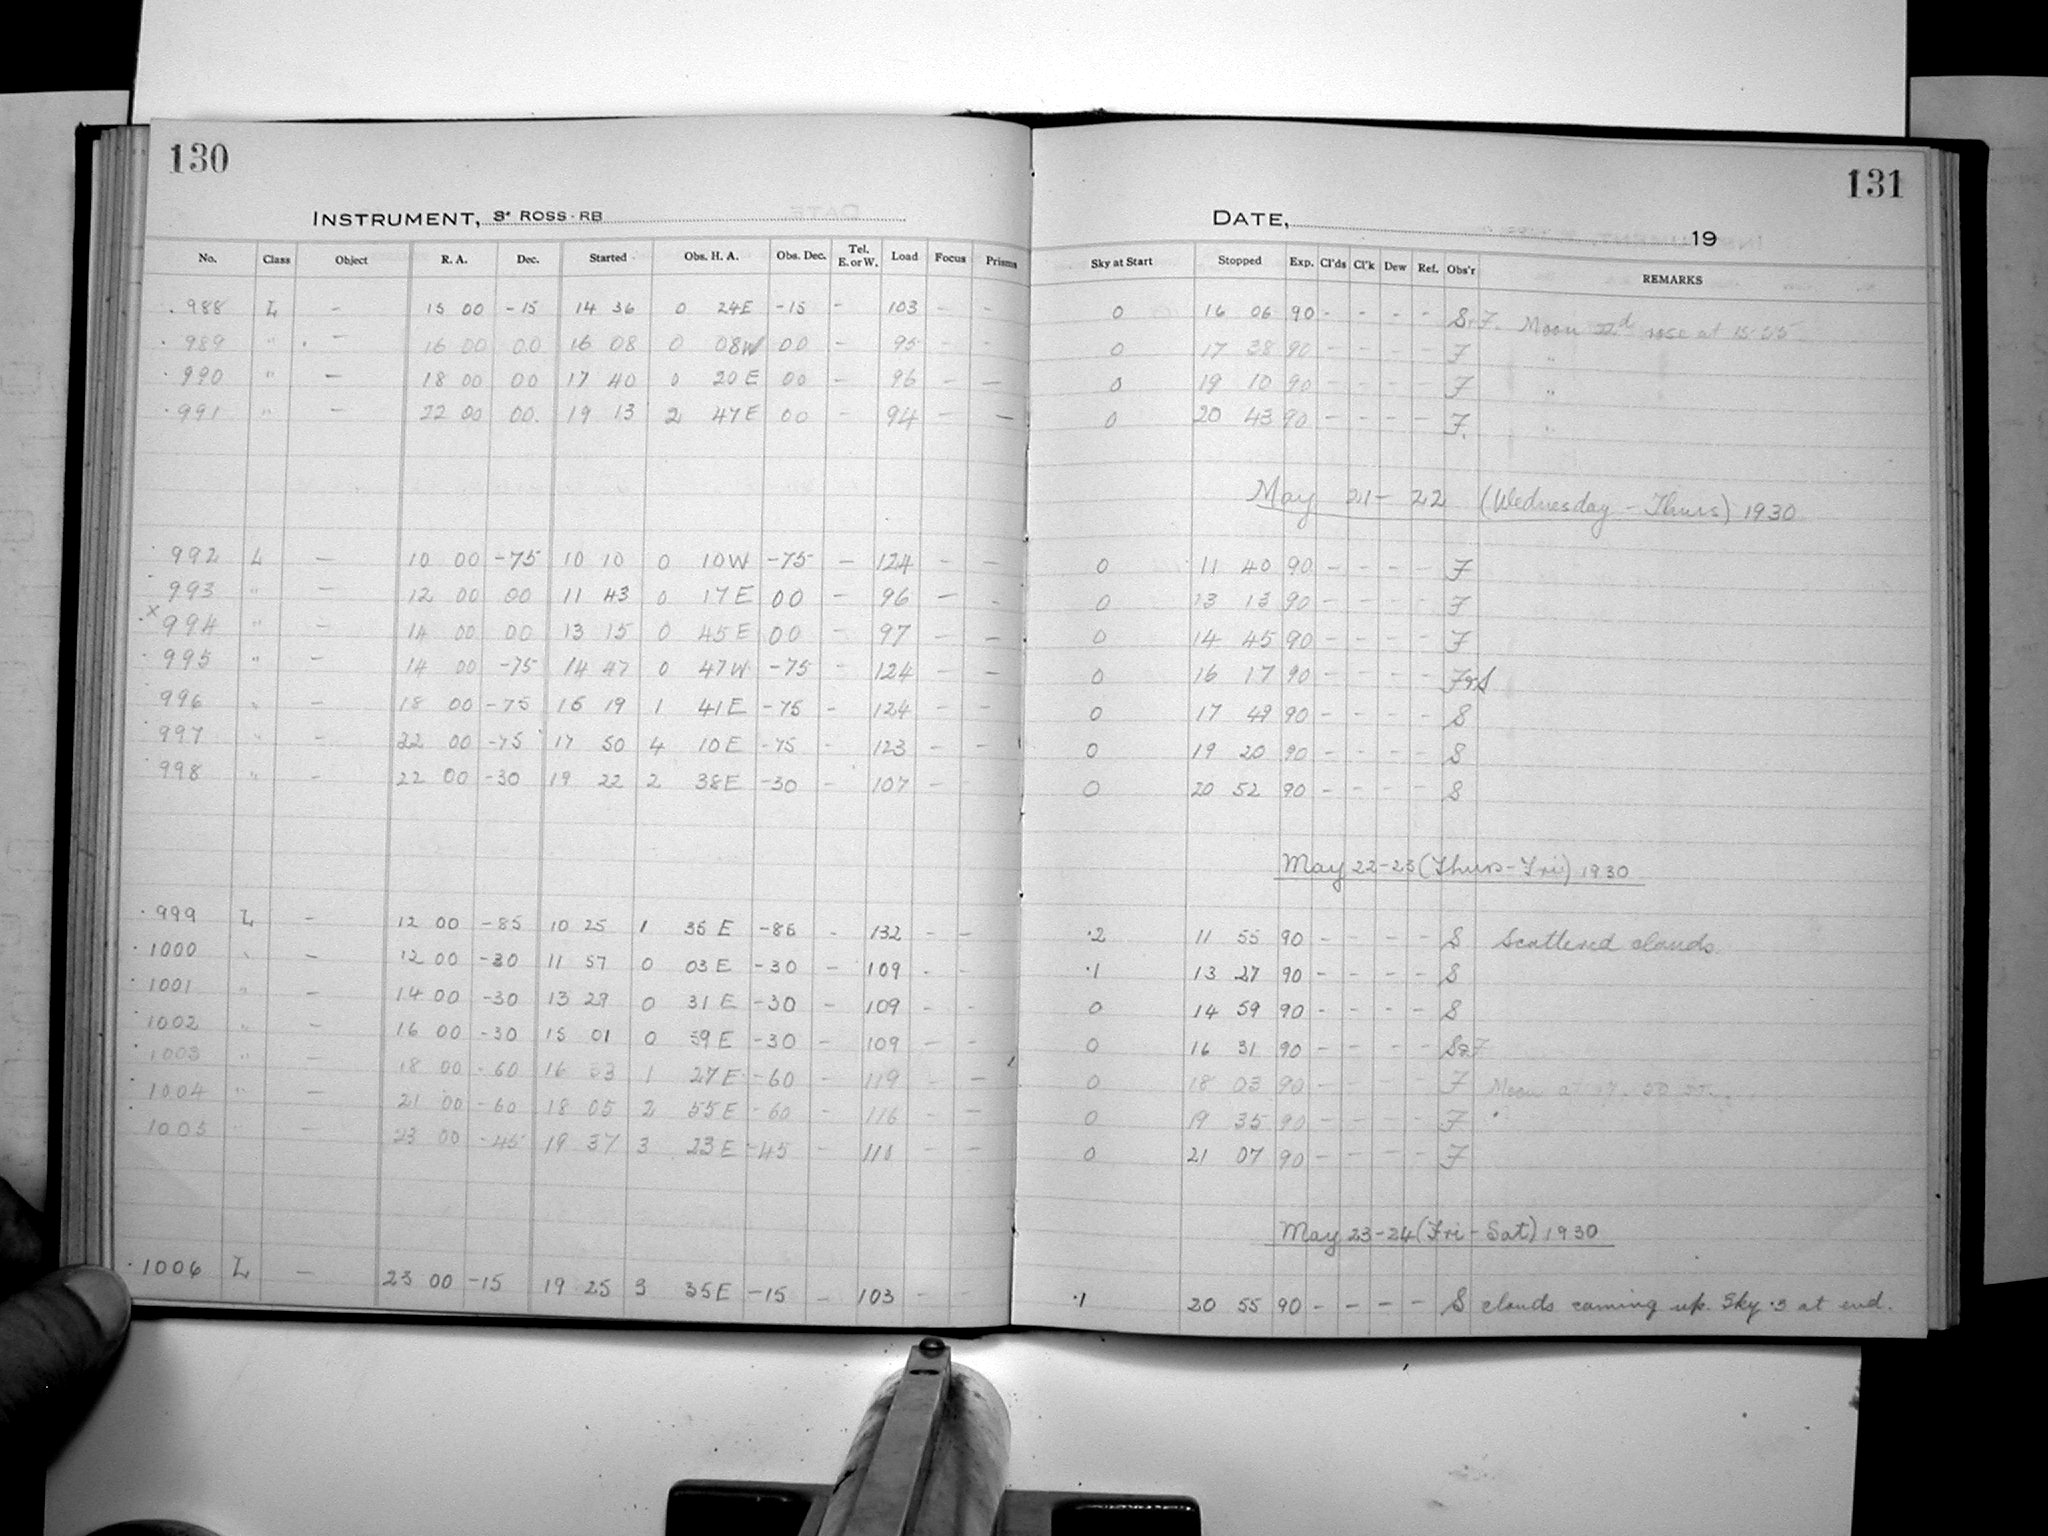 130
INSTRUMENT, 3" ROSS-RB
No. Class Object R. A. Dec. Started Obs. H. A. Obs. Dec. Tel. E. or W. Load Focus Prisms
988 L — 15 00 -15 14 36 0 24E -15 - 103 - -
989 " - 16 00 00 16 08 0 08W 00 - 95 - -
990 " — 18 00 00 17 40 0 20E 00 - 96 - —
991 " — 22 00 00. 19 13 2 47E 00 - 94 - —
992 L — 10 00 -75 10 10 0 10W -75 — 124 - —
993 " — 12 00 00 11 43 0 17E 00 - 96 - -
x 994 " - 14 00 00 13 15 0 45E 00 - 97 - —
995 " - 14 00 -75 14 47 0 47W -75 - 124 - —
996 " - 18 00 -75 16 19 1 41E -75 - 124 - -
997 " - 22 00 -75 17 50 4 10E -75 - 123 - -
998 " - 22 00 -30 19 22 2 38E -30 - 107 -
999 L - 12 00 -85 10 25 1 35E -85 - 132 - -
1000 " - 12 00 -30 11 57 0 03E -30 - 109 - -
1001 " - 14 00 -30 13 29 0 31E -30 - 109 - -
1002 " - 16 00 -30 15 01 0 59E -30 - 109 - -
1003 " - 18 00 -60 16 33 1 27E -60 - 119 - —
1004 " - 21 00 -60 18 05 2 55E -60 - 116 - -
1005 " - 23 00 -45 19 37 3 23E -45 - 111 - -
1006 L — 23 00 -15 19 25 3 35E -15 - 103 -
131
DATE, 19
Sky at Start Stopped Exp. Cl'ds Cl'k Dew Ref. Obs'r REMARKS
0 16 06 90 - - - - S+F. Moon 22d rose at 15 05
0 17 38 90 - - - - F "
0 19 10 90 - - - - F "
0 20 43 90 - - - - F. "
May 21-22 (Wednesday - Thurs) 1930
0 11 40 90 - - - - F
0 13 13 90 - - - - F
0 14 45 90 - - - - F
0 16 17 90 - - - - F&S
0 17 49 90 - - - - S
0 19 20 90 - - - - S
0 20 52 90 - - - - S
May 22-23 (Thurs-Fri) 1930
.2 11 55 90 - - - - S Scattered clouds
.1 13 27 90 - - - - S
0 14 59 90 - - - - S
0 16 31 90 - - - - S&F
0 18 03 90 - - - - F Moon at
0 19 35 90 - - - - F "
0 21 07 90 - - - - F
May 23-24 (Fri-Sat) 1930
.1 20 55 90 - - - - S clouds coming up. Sky .3 at end.